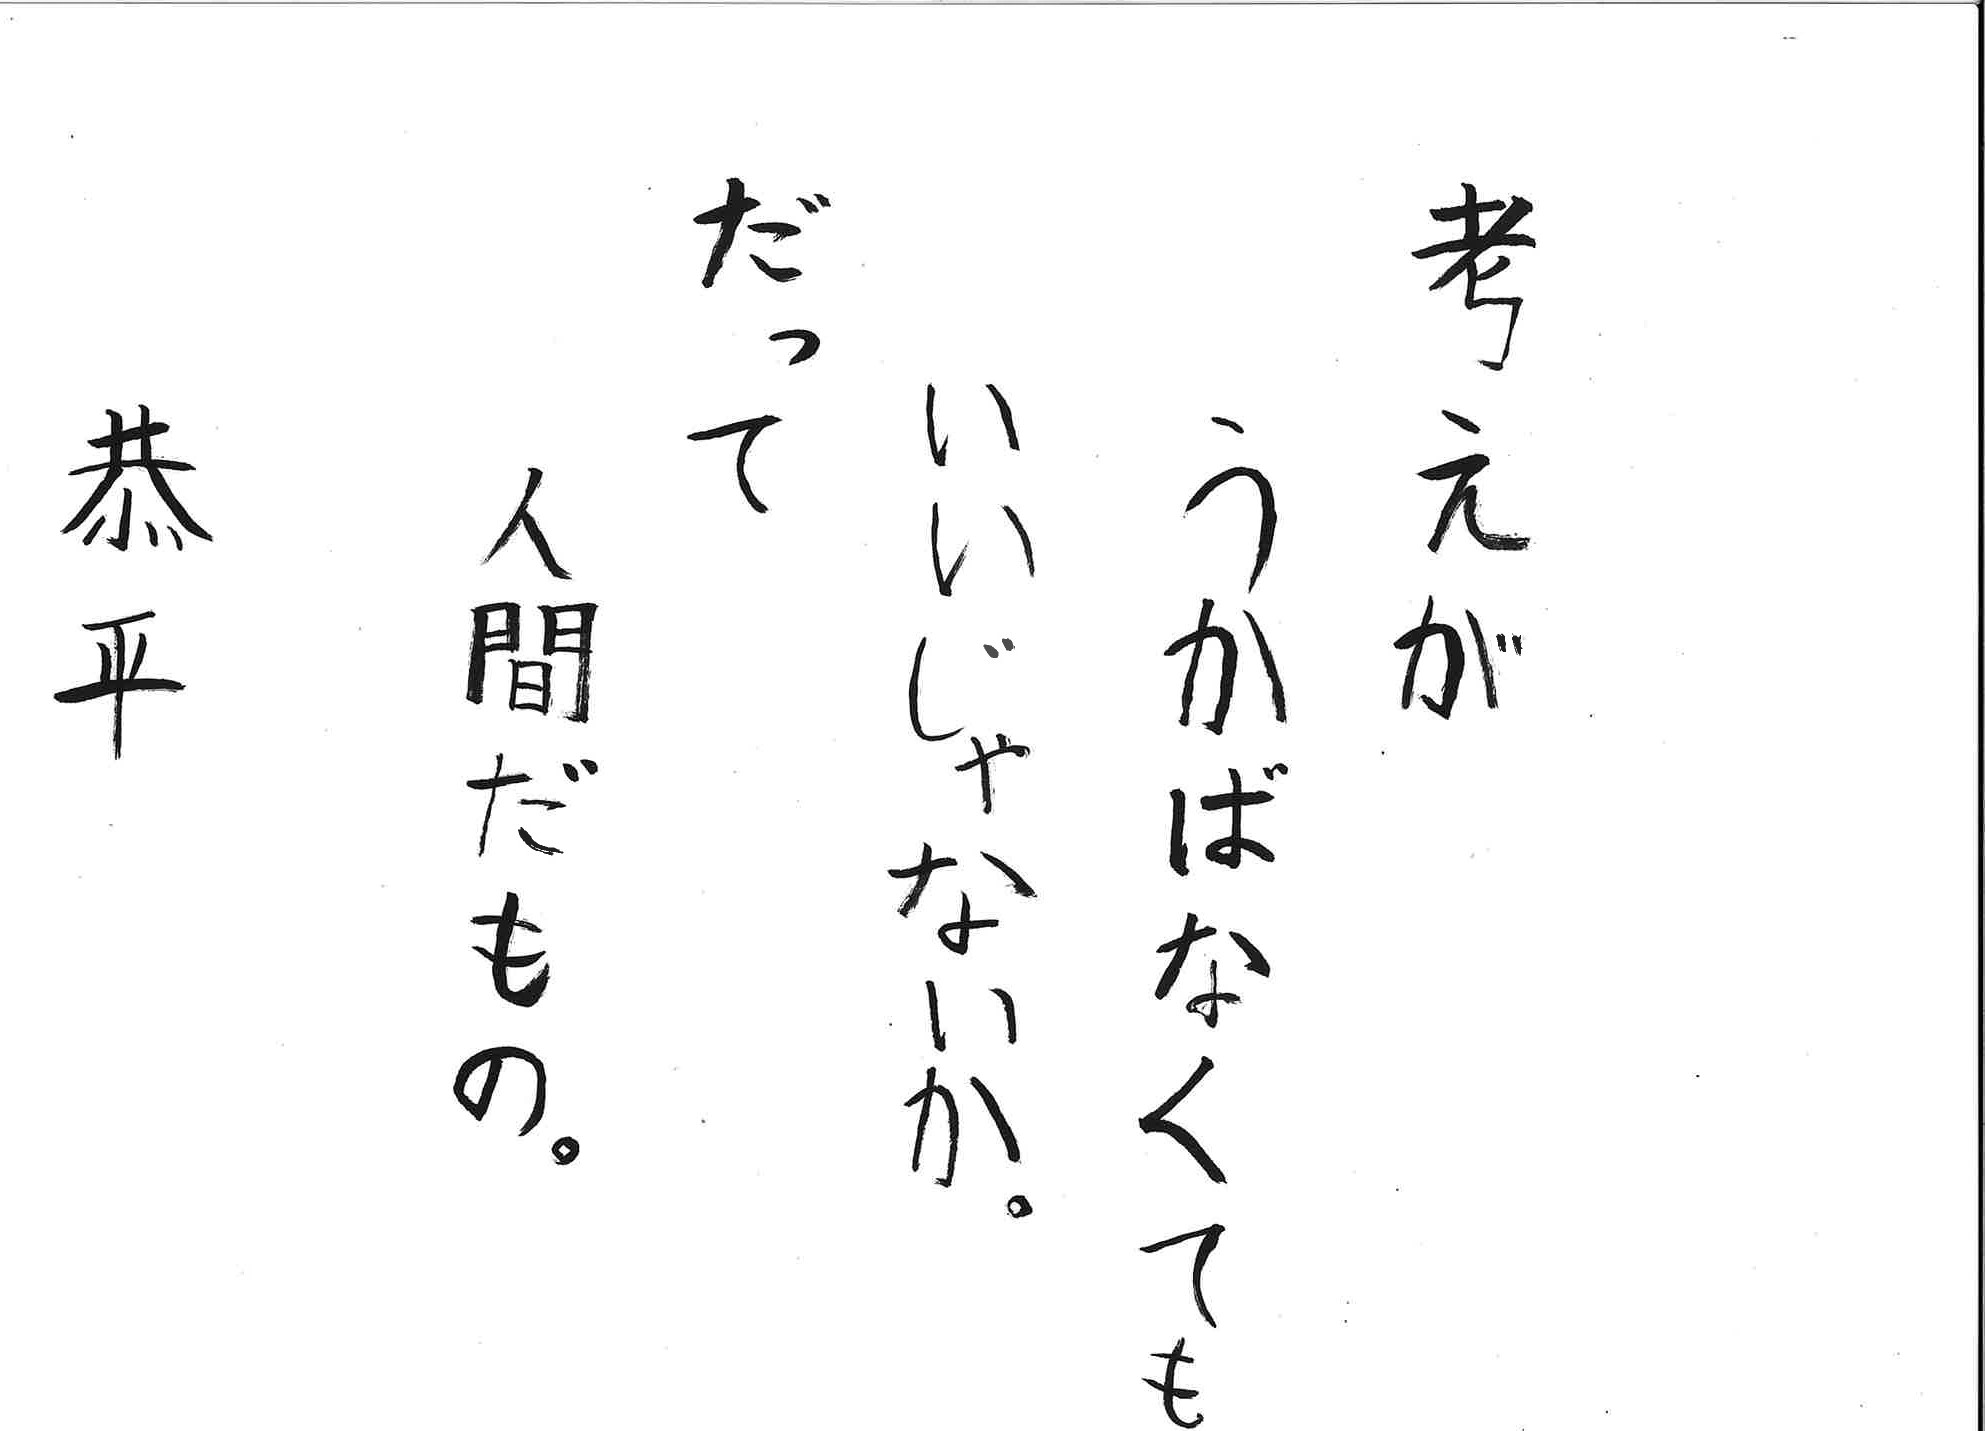 考えが
うかばなくても
いいじゃないか。
だって
人間だもの。
恭平